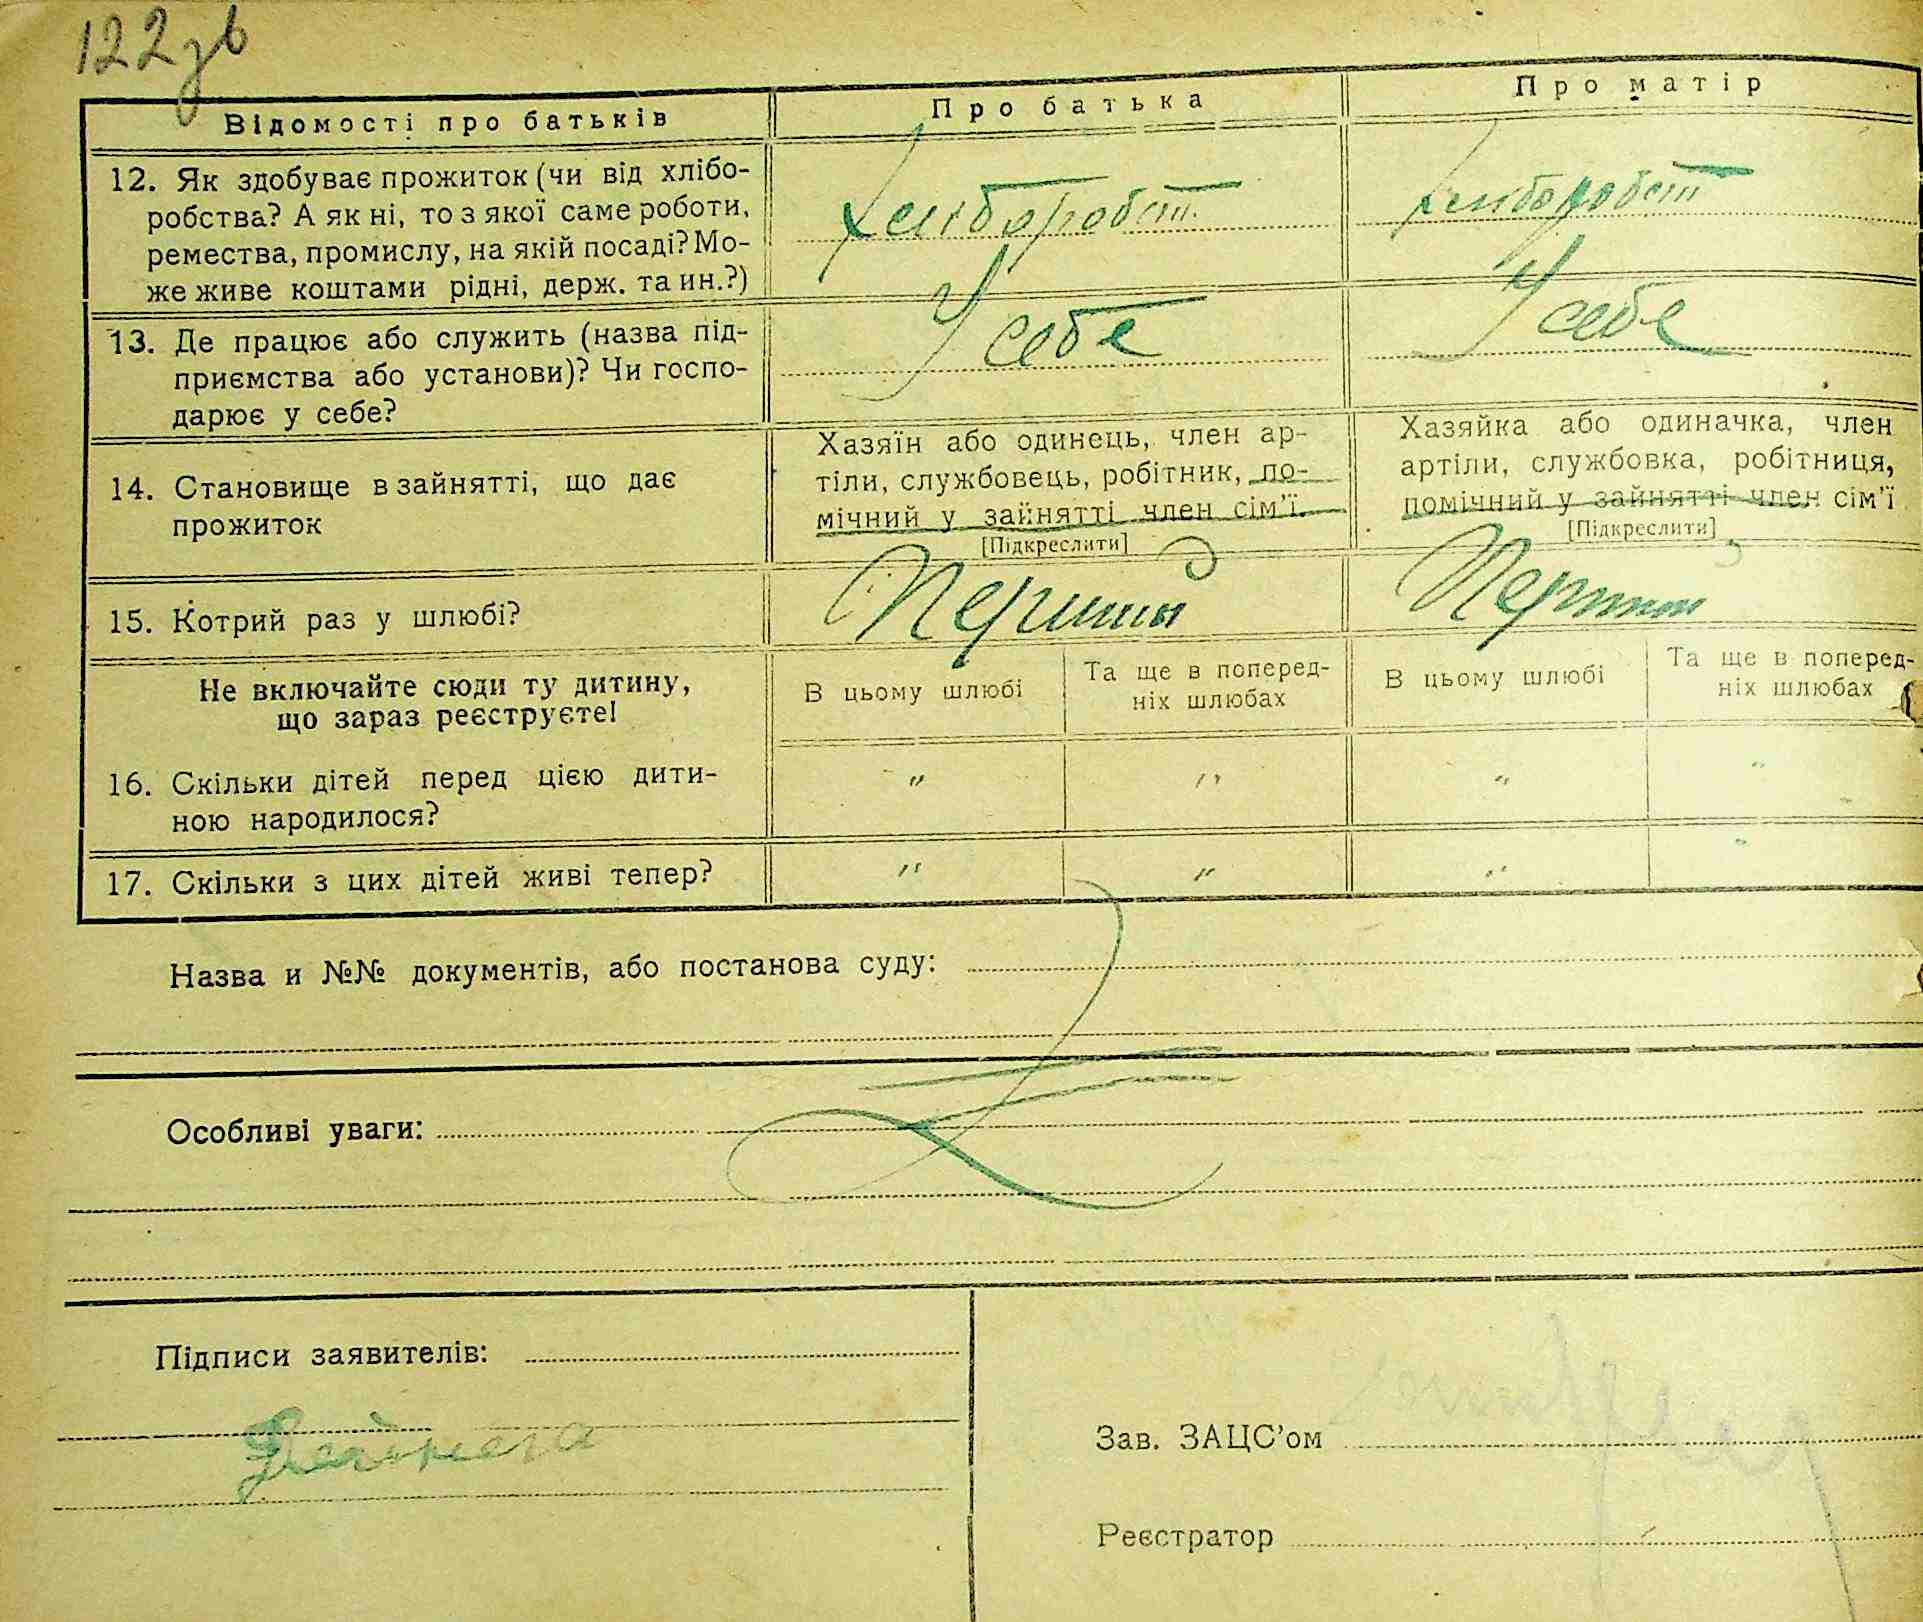 122 зв
Відомості про батьків
Про батька
Про матір
12. Як здобуває прожиток (чи від хлібо-
робства? А як ні, то з якої саме роботи,
ремества, промислу, на якій посаді? Мо-
же живе коштами рідні, держ. та ин.?)
Хліборобст.
Хліборобст
13. Де працює або служить (назва під-
приємства або установи)? Чи госпо-
дарює у себе?
У себе
У себе
14. Становище в зайнятті, що дає
прожиток
Хазяїн або одинець, член ар-
тіли, службовець, робітник, по-
мічний у зайнятті член сім'ї.
[Підкреслити]
Хазяйка або одиначка, член
артіли, службовка, робітниця,
помічний у зайнятті член сім'ї
[Підкреслити]
15. Котрий раз у шлюбі?
Не включайте сюди ту дитину,
що зараз реєструєте!
В цьому шлюбі
Та ще в поперед-
ніх шлюбах
В цьому шлюбі
Та ще в поперед-
ніх шлюбах
16. Скільки дітей перед цією дити-
ною народилося?
" " " "
17. Скільки з цих дітей живі тепер?
" " " "
Назва и №№ документів, або постанова суду:
Особливі уваги:
Підписи заявителів:
Зав. ЗАЦС'ом
Реєстратор